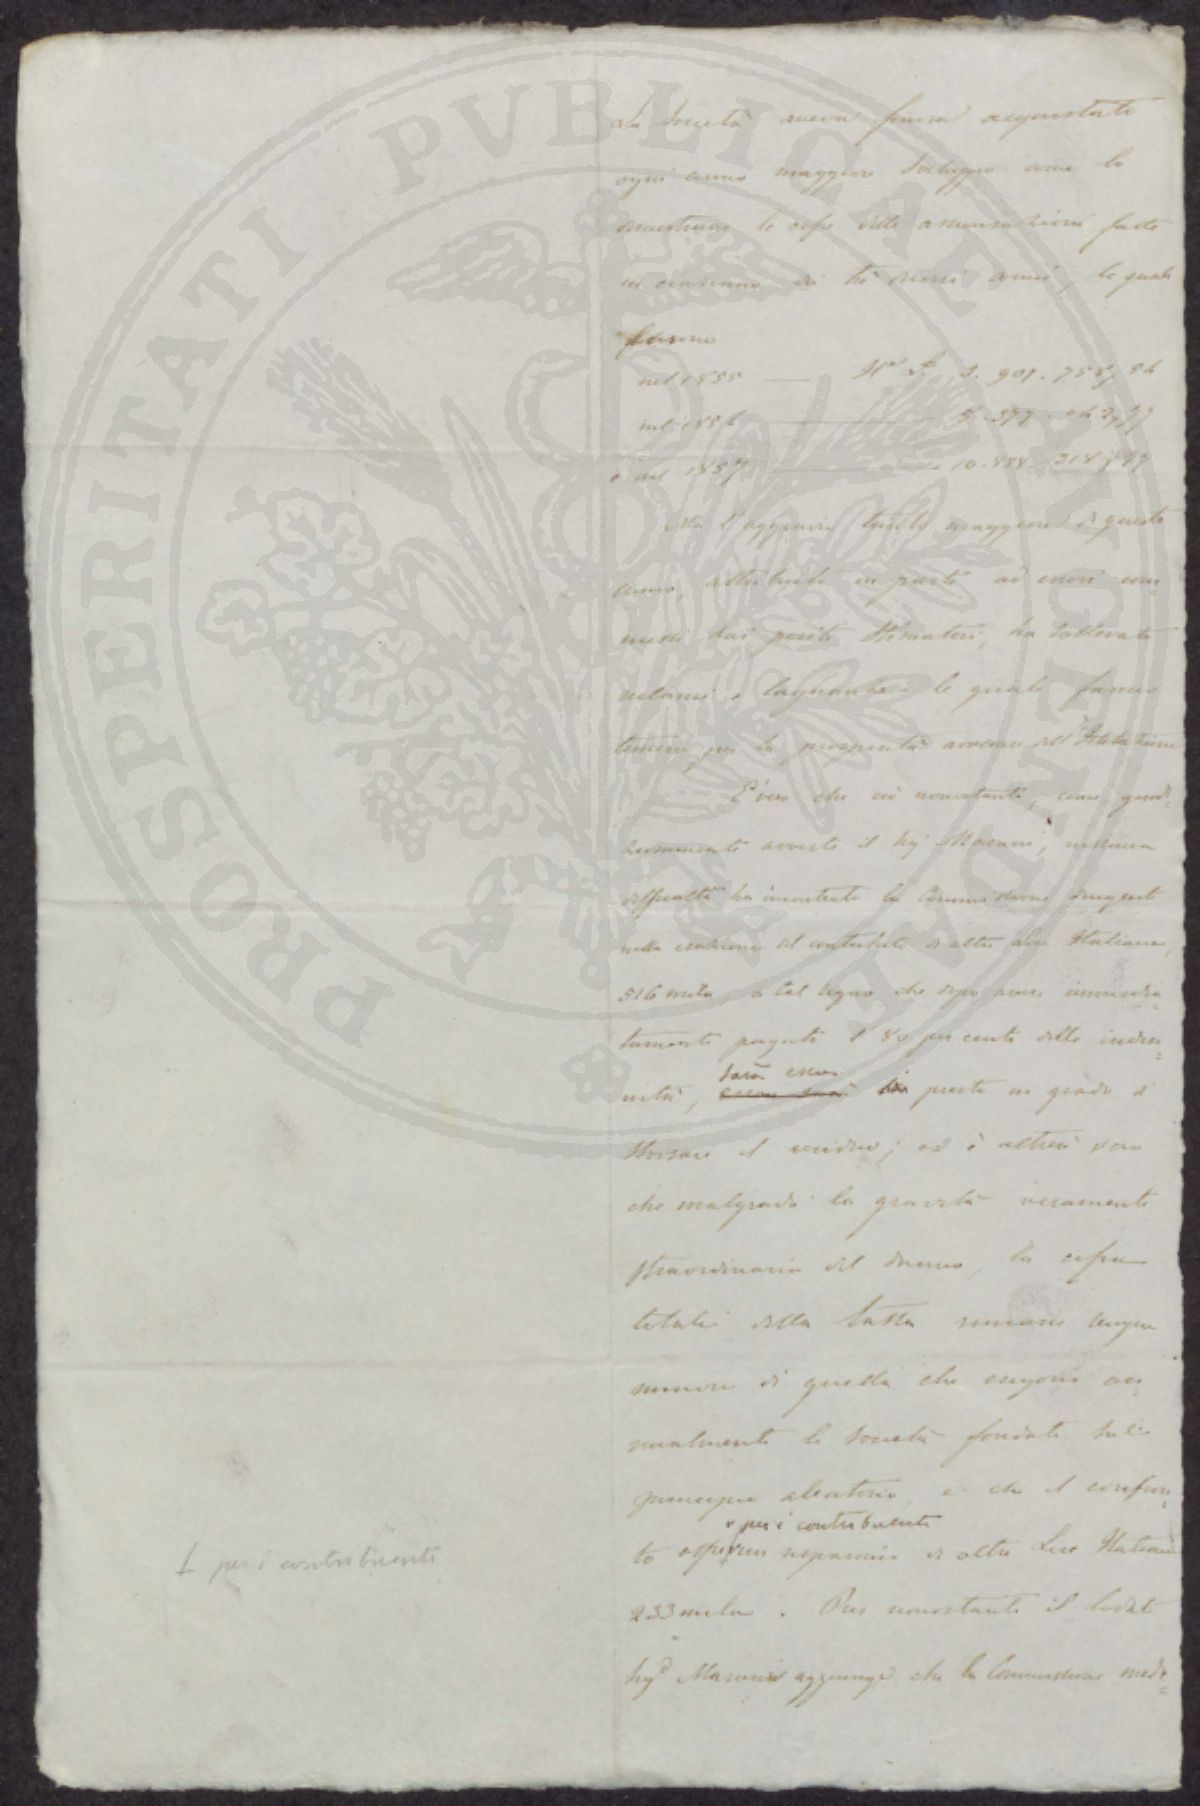 PROSPERITATI PVBLICAE AVGENDAE
La Società aveva finora acquistato
ogni anno maggiore sviluppo come lo
dimostrano le cifre delle assicurazioni fatte
in ciascuno di tré diversi anni, le quali
furono
nel 1855 3.901.758,56
nel 1856
e nel 1857 10.858.318,
Ma l'aggravio tanto maggiore di questo
anno, attribuito in parte ad errori com
messi dai periti stimatori, ha sollevato
reclami e lagnanze le quali fanno
temere per la prosperità avvenire dell'Istituzione
E' vero che ciò nonostante, come
avverte il Sig. Marani, nessuna
difficoltà ha incontrato la Commissione
nella esazione del contributo di oltre Lire Italiane
516 mila, a tal segno che dopo avere immedia=
tamente pagato l' 80 per cento delle inden=
nità, sarà essa presto in grado di
sborsare il residuo; ed è altresì vero
che malgrado la gravità veramente
straordinaria del danno, la cifra
totale della tassa rimane sempre
minore di quella che esigono an=
nualmente le Società fondate sul
principio aleatorio, e che il confron=
per i contribuenti
to offre un risparmio di oltre Lire Italiane
233 mila. Pur nonostante il lodato
Sigr. Marani aggiunge che la Commissione mede=
per i contribuenti